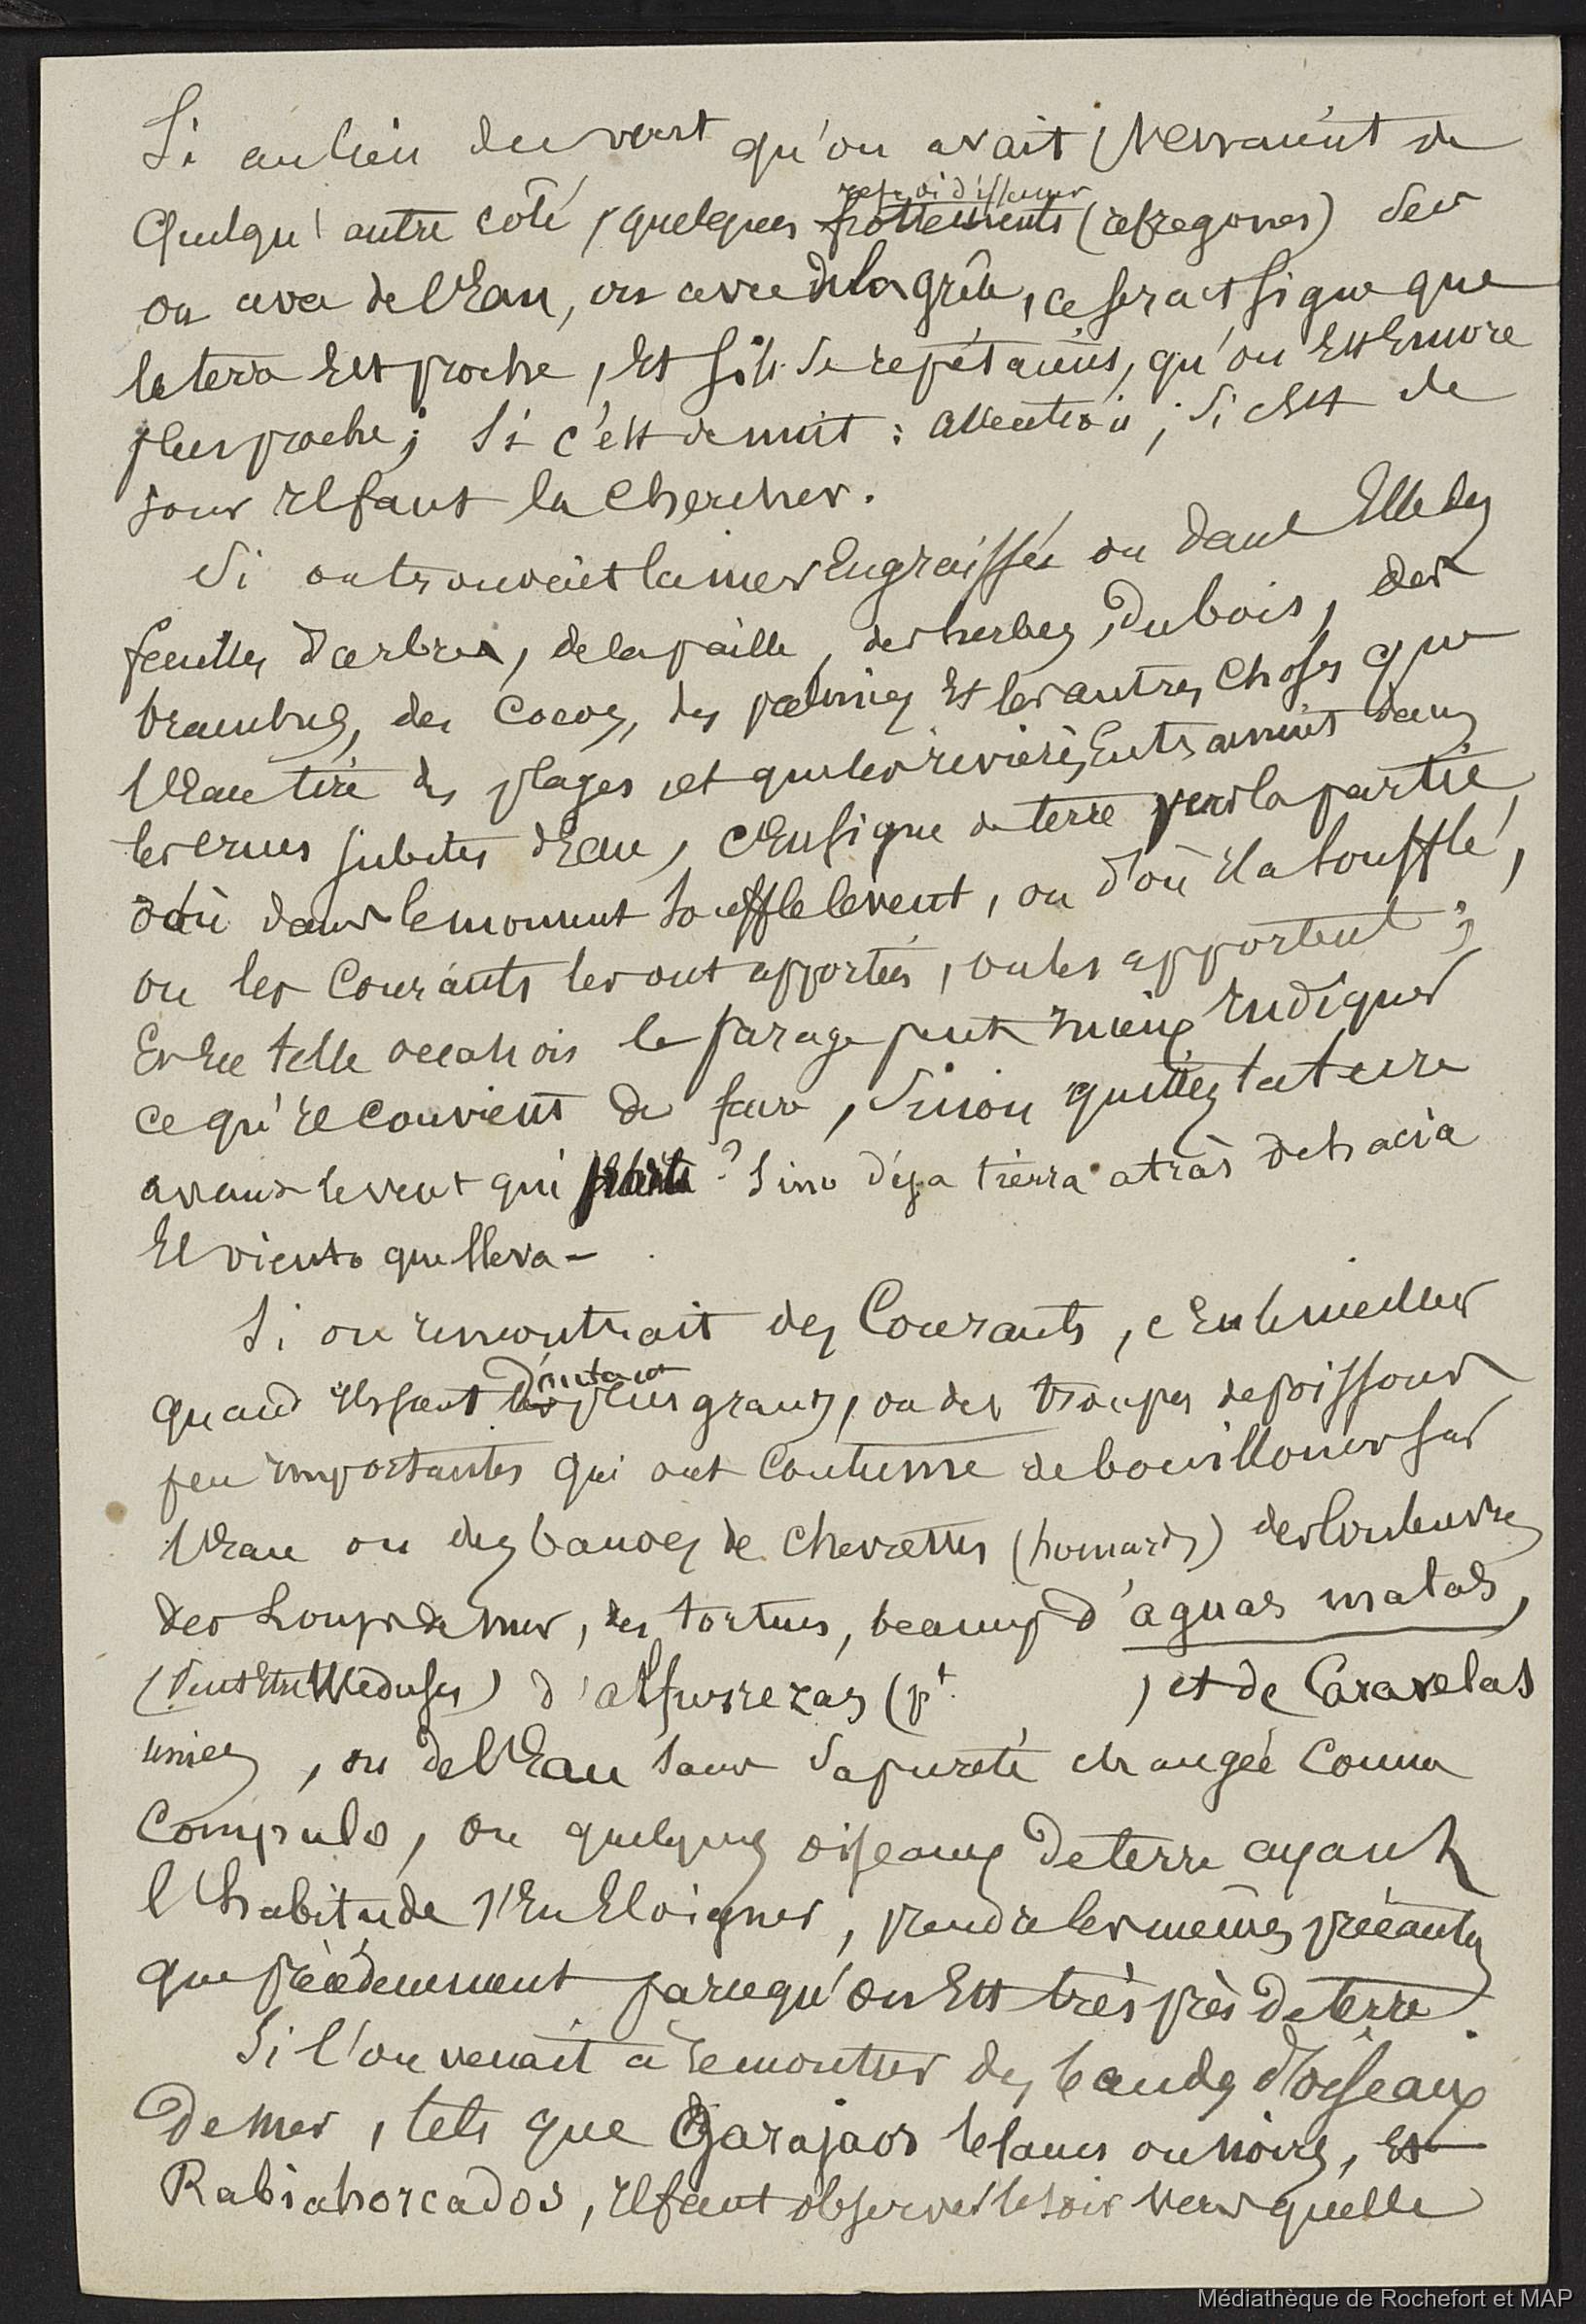 Si au lieu du vent qu'on avait, venaient de
quelqu'autre côté, quelques refroidisseurs
frottements (refregones) secs
ou avec de l'Eau, ou avec de la grêle, ce serait signe que
la terre Est proche, Et s'ils se répétaient, qu'on Est Encore
plus proche; Si c'est de nuit : attention ; si c'Est de
jour Il faut la chercher.
Si on trouvait la mer Engraissée ou dans Elle des
feuilles d'arbres, de la paille, des herbes, du bois, des
branches, des Cocos, des palmes Et les autres choses que
l'Eau tire des plages et que les rivières Entrainent dans
les crues subites d'Eau, c'En signe de terre vers la partie
d'où dans le moment souffle le vent, ou d'où Il a soufflé,
ou les Courants les ont apportés, ou les apportent ;
En telle occasion le parage peut mieux Indiquer
ce qu'Il convient de faire, sinon quittez la terre
avant le vent qui ? Sino deja tierra atràs de hacia
El viento que lleva -
Si on rencontrait des Courants, c'En le meilleur
d'autant
quand Ils sont les plus grands, ou des troupes de poissons
peu importantes qui ont coutume de bouillonner sur
l'Eau ou des bandes de chevrettes (homards) des couleuvres
des Loups de mer, des tortues, beaucoup d'aguas malas,
(Peut être Méduses) d'alfurrezas (pt. ) et de Caravelas
unies, ou de l'Eau dans sa pureté changée comme
Compulo, ou quelques oiseaux de terre ayant
l'habitude s'En Eloigner, prendre les mêmes précautes
que précédemment parce qu'on Est très près de terre.
Si l'on venait à rencontrer des bandes d'oiseaux
de mer, tels que Garajaos blancs ou noirs, Et
Rabiahorcados, Il faut observer le soir vers quelle
Médiathèque de Rochefort et MAP